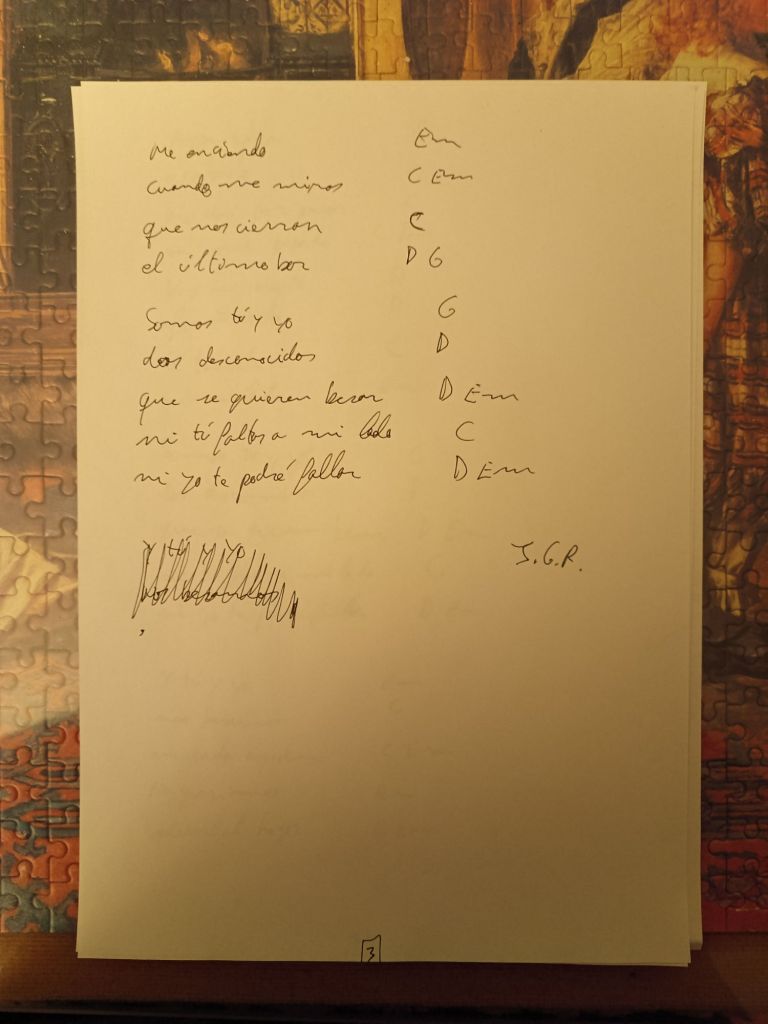 Me enciendo Em
cuando me miras C Em
que nos cierran C
el último bar D G
Somos tú y yo G
dos desconocidos D
que se quieren besar D Em
ni tú faltas a mi lado C
ni yo te podré fallar D Em
y tú y yo
J.G.R.
3